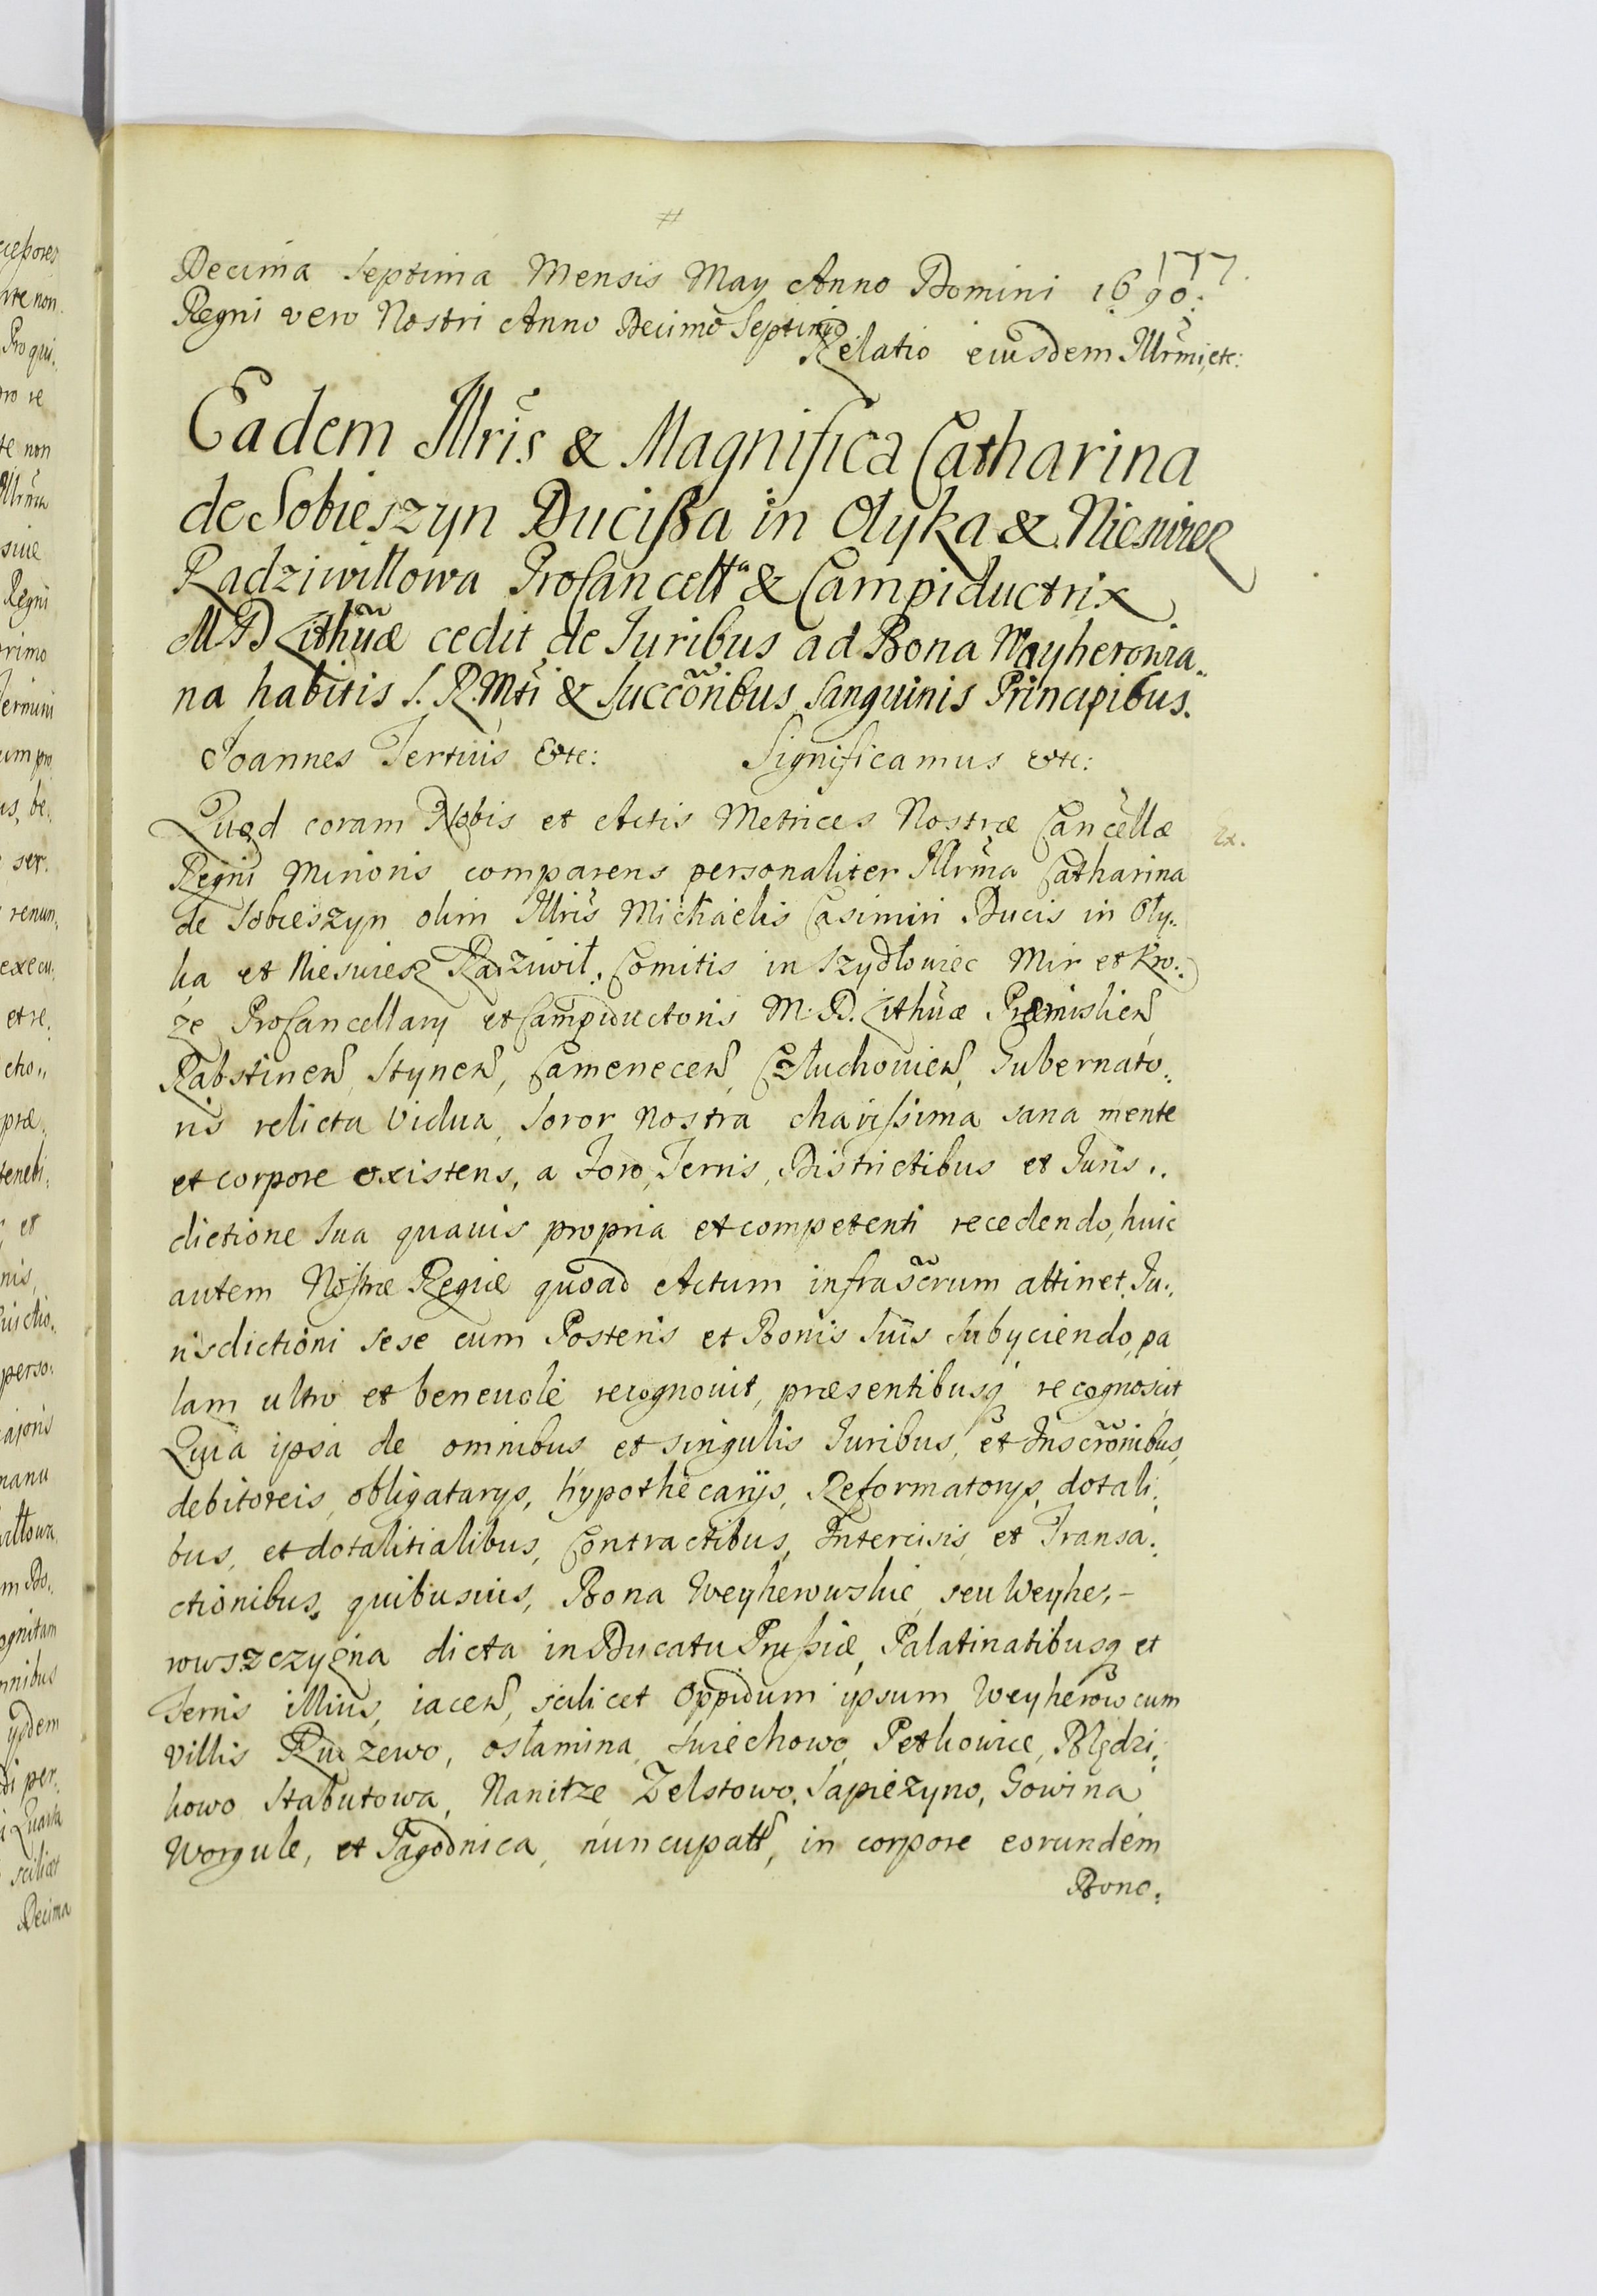 177.
Decima Septima Mensis May Anno Domini 1690.
Regni vero Nostri Anno Decimo Septimo
Relatio eiusdem Illrmi, etc:
Eadem Illris & Magnifica Catharina
de Sobieszyn Ducissa in Olyka & Nieswiez
Radziwillowa ProCancellª & Campiductrix
M D Lithuæ cedit de Juribus ad Bona Wayherowia„
na habitis S. R. Mti & Succoribus Sanguinis Principibus.
Joannes Tertius Etc: Significamus etc:
Quod coram Nobis et Actis Metrices Nostræ Cancellæ
Ex.
Regni Minoris comparens personaliter Illrma Catharina
de Sobieszyn olim Illris Michaelis Casimiri Ducis in Oly„
ka et Nieswiesz Radziwił, Comitis in Szydłowiec Mir et Kro„
ze ProCancellary et Campiductoris M. D. Lithuæ Præmislien,
Rabstinen, Stynen, Camenecen, Człuchovien, Gubernato„
ris relicta Vidua, Soror Nostra charissima sana mente
et corpore existens, a Foro, Terris, Districtibus et Juris„
dictione Sua quavis propria et competenti recedendo, huic
autem Nostræ Regiæ quoad Actum infrascrum attinet Ju„
risdictioni sese cum Posteris et Bonis Suis Subyciendo, pa
lam ultro et benevole recognovit, præsentibusq recognoscit
Quia ipsa de omnibus et singulis Juribus, et Inscronibus,
debitoreis, obligatarys, hypothecarijs, Reformatorys, dotali„
bus, et dotalitialibus, Contractibus, Intercisis, et Transa„
ctionibus, quibusvis, Bona Weyherowskie, seu Weyhe,-
rowszczyzna dicta in Ducatu Prussiæ, Palatinatibusq et
Terris illius, iacen, scilicet Oppidum ipsum Weyherow cum
Villis Ruczewo, ostamina, Swiechowo, Petkowice, Blędzi„
kowo Stabutowa, Nanitze Zelstowo, Sapiezyno, Gowina
Worgule, et Jagodnica, nuncupatt, in corpore eorundem
Bono„